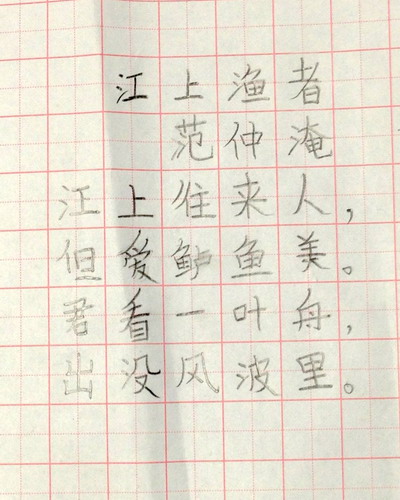 江上渔者
范仲淹
江上住来人，
但爱鲈鱼美。
君看一叶舟，
出没风波里。